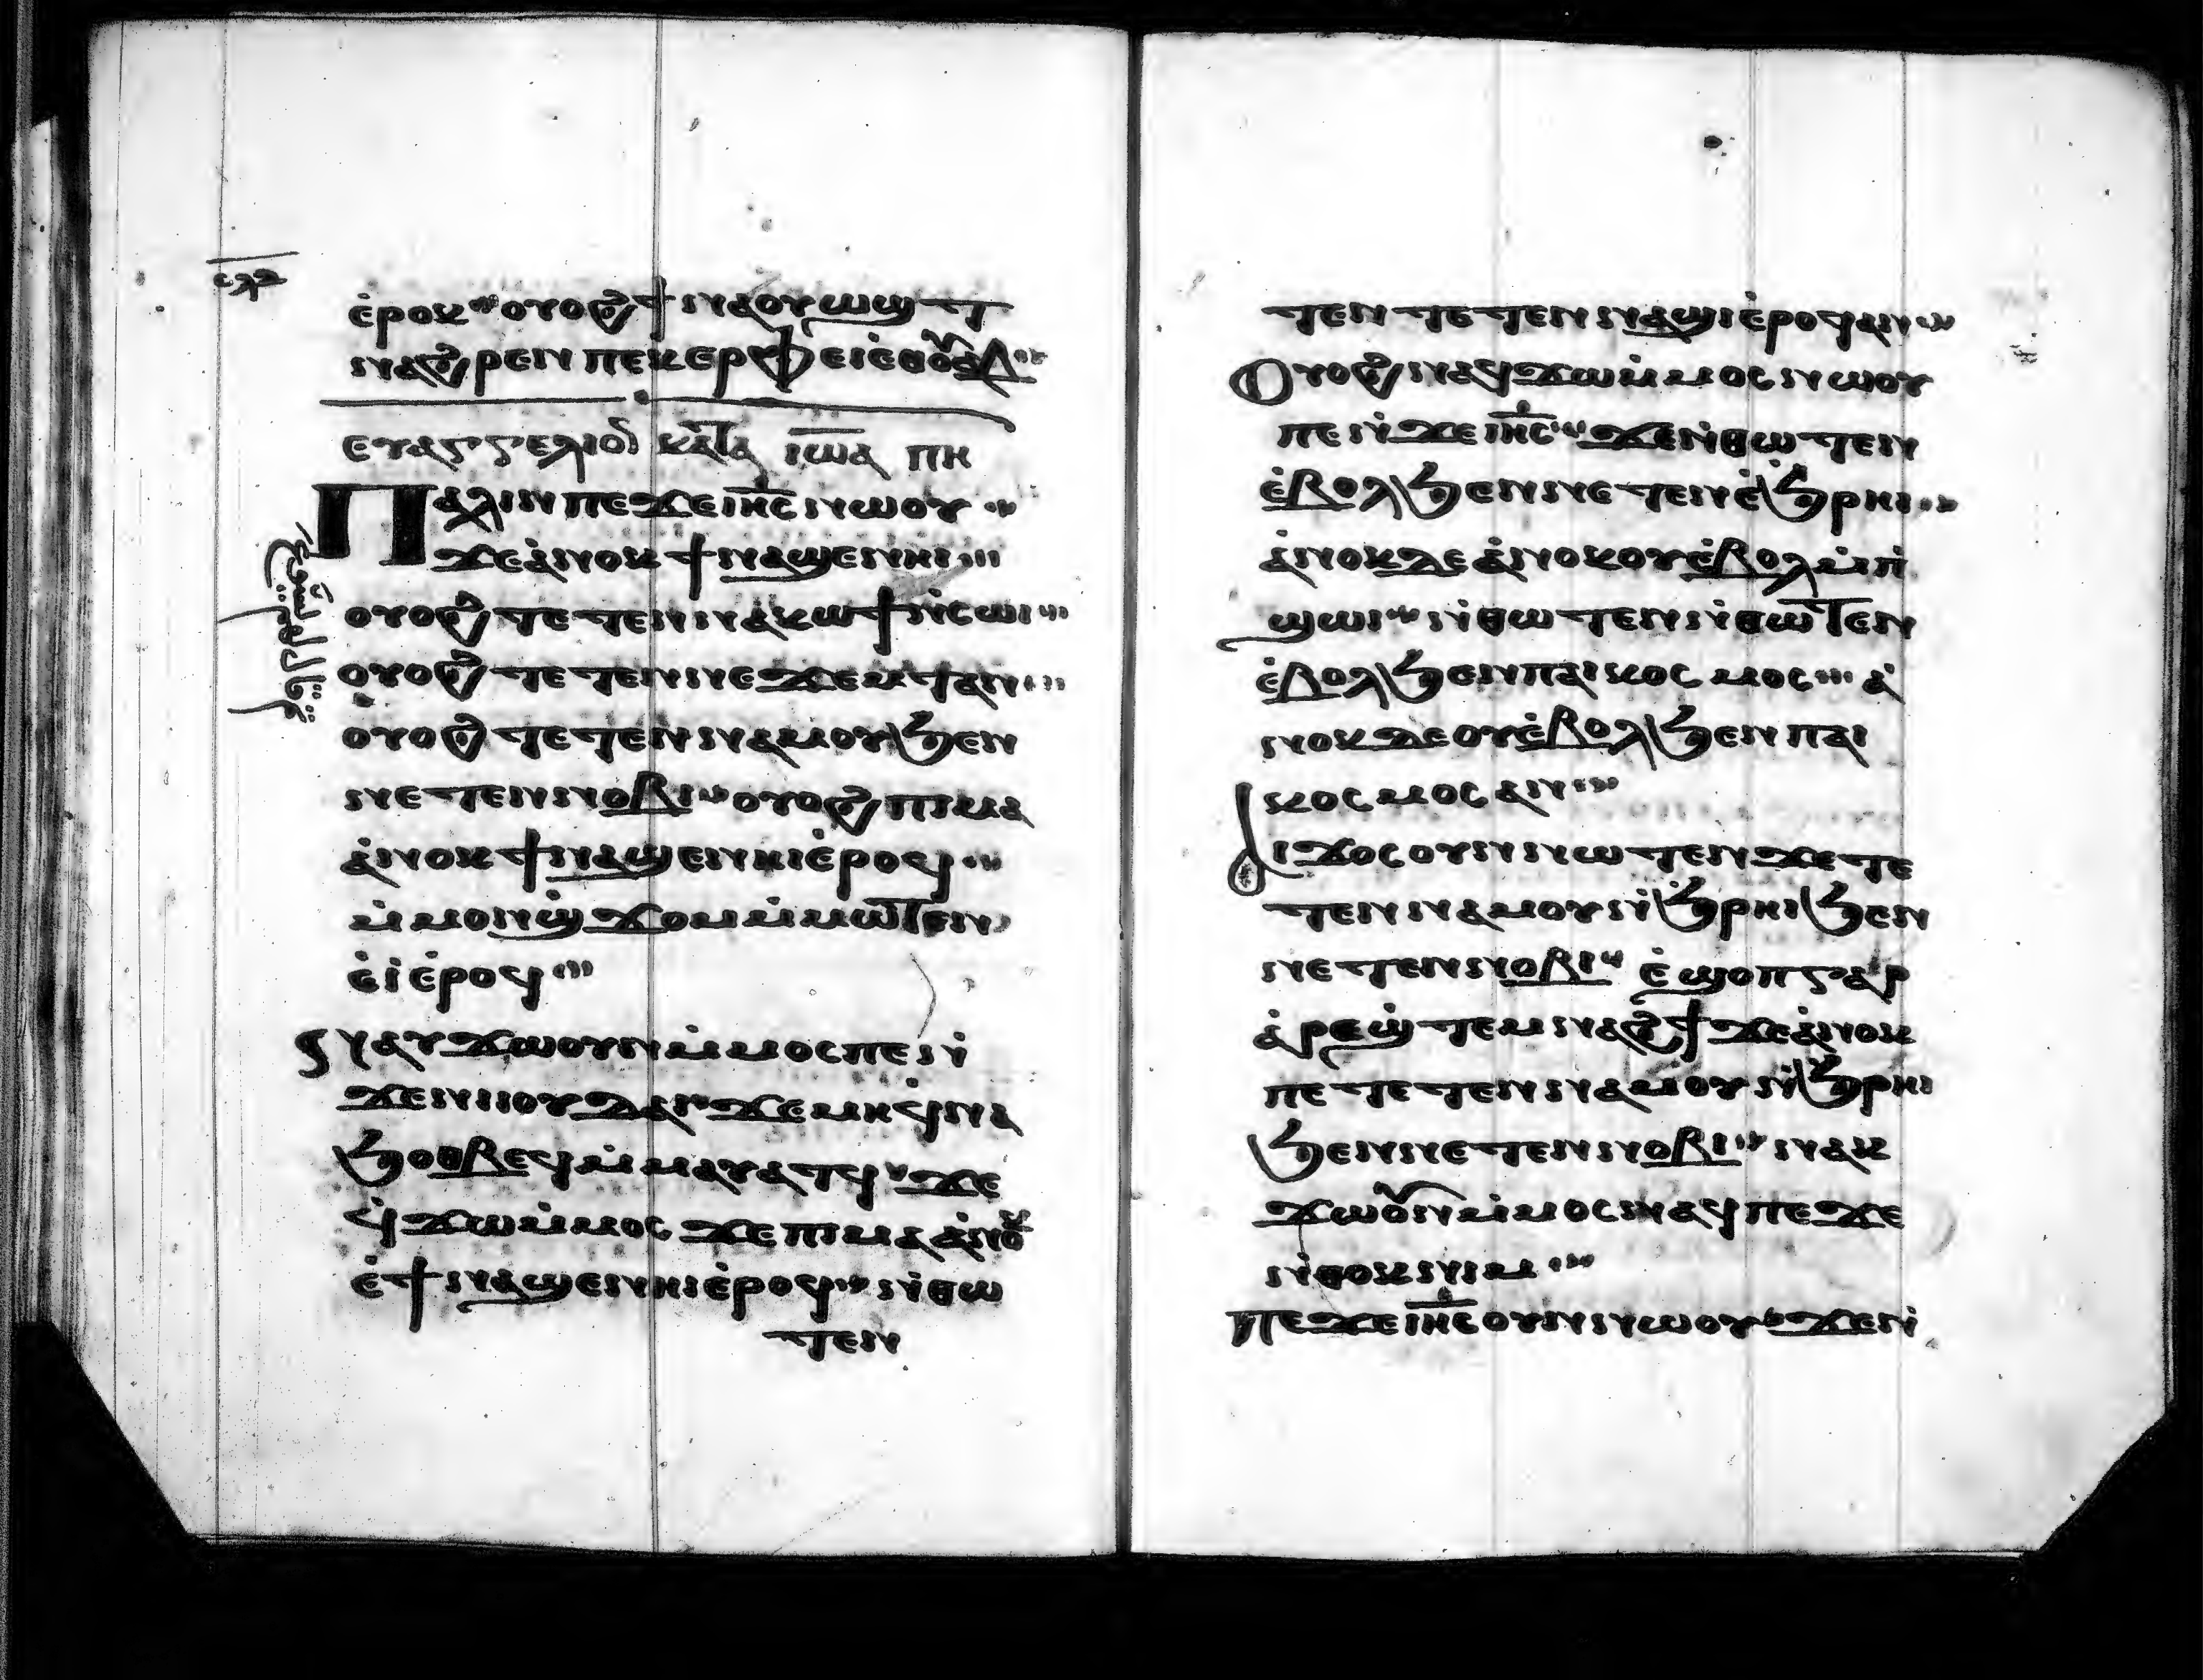 ⲉ̀ⲣⲟⲕ ⲟⲩⲟϩ ϯⲛⲁⲟⲩⲱϣⲧ
ⲛⲁϩⲣⲉⲛ ⲡⲉⲕⲉⲣⲫⲉⲓ ⲉ̀ⲑⲟⲩⲁⲃ
ⲉⲩⲁⲅⲅⲉⲗⲓⲟⲛ ⲕⲁⲧⲁ ⲓⲱⲁ ⲡⲏ
Ⲡⲁⲗⲓⲛ ⲡⲉϫⲉ ⲓⲏⲥ ⲛⲱⲟⲩ
ϫⲉ ⲁ̀ⲛⲟⲕ ϯⲛⲁϣⲉⲛⲏⲓ
ⲟⲩⲟϩ ⲧⲉⲧⲉⲛⲛⲁⲕⲱϯ ⲛ̀ⲥⲱⲓ
ⲟⲩⲟϩ ⲧⲉⲧⲉⲛⲛⲉϫⲉⲙⲧ ⲁⲛ
ⲟⲩⲟϩ ⲧⲉⲧⲉⲛⲛⲁⲙⲟⲩ ϧⲉⲛ
ⲛⲉⲧⲉⲛⲛⲟⲃⲓ ⲟⲩⲟϩ ⲡⲓⲙⲁ
ⲁ̀ⲛⲟⲕ ϯⲛⲁϣⲉⲛⲏⲓ ⲉ̀ⲣⲟϥ
ⲙ̀ⲙⲟⲛϣ̀ϫⲟⲙ ⲙ̀ⲙⲱⲧⲉⲛ
ⲉ̀ⲓ̀ ⲉ̀ⲣⲟϥ
Ⲛⲁⲩϫⲱ ⲟⲩⲛ ⲙ̀ⲙⲟⲥ ⲡⲉ ⲛ̀
ϫⲉ ⲛⲓⲓⲟⲩⲇⲁⲓ ϫⲉ ⲙⲏ ϥ̀ⲛⲁ
ϧⲟⲑⲃⲉϥ ⲙ̀ⲙⲁⲩⲁⲧϥ ϫⲉ
ϥ̀ϫⲱ ⲙ̀ⲙⲟⲥ ϫⲉ ⲡⲓⲙⲁ ⲁ̀ⲛⲟⲕ
ⲉ̀ϯⲛⲁϣⲉⲛⲏⲓ ⲉ̀ⲣⲟϥ ⲛ̀ⲑⲱ
ⲧⲉⲛ
ⲧⲉⲛ ⲧⲉⲧⲉⲛⲛⲁϣⲓ ⲉ̀ⲣⲟϥ ⲁⲛ
Ⲟⲩⲟϩ ⲛⲁϥϫⲱ ⲙ̀ⲙⲟⲥ ⲛⲱⲟⲩ
ⲡⲉ ⲛ̀ϫⲉ ⲓⲏⲥ ϫⲉ ⲛ̀ⲑⲱⲧⲉⲛ
ⲉ̀ⲃⲟⲗ ϧⲉⲛ ⲛⲉⲧⲉⲛⲉ̀ϧⲣⲏⲓ
ⲁ̀ⲛⲟⲕ ⲇⲉ ⲁ̀ⲛⲟⲕ ⲟⲩⲉ̀ⲃⲟⲗ ⲙ̀ⲡ̀
ϣⲱⲓ ⲛ̀ⲑⲱⲧⲉⲛ ⲛ̀ⲑⲱⲧⲉⲛ
ⲉ̀ⲃⲟⲗ ϧⲉⲛ ⲡⲁⲓⲕⲟⲥⲙⲟⲥ ⲁ̀
ⲛⲟⲕ ⲇⲉ ⲟⲩⲉ̀ⲃⲟⲗ ϧⲉⲛ ⲡⲁⲓ
ⲕⲟⲥⲙⲟⲥ ⲁⲛ
Ⲁⲓϫⲟⲥ ⲟⲩⲛ ⲛⲱⲧⲉⲛ ϫⲉ ⲧⲉ
ⲧⲉⲛⲛⲁⲙⲟⲩ ⲛ̀ϧⲣⲏⲓ ϧⲉⲛ
ⲛⲉⲧⲉⲛⲛⲟⲃⲓ ⲉ̀ϣⲟⲡ ⲅⲁⲣ
ⲁ̀ⲣⲉϣ̀ⲧⲉⲙⲛⲁϩϯ ϫⲉ ⲁ̀ⲛⲟⲕ
ⲡⲉ ⲧⲉⲧⲉⲛⲛⲁⲙⲟⲩ ⲛ̀ϧⲣⲏⲓ
ϧⲉⲛ ⲛⲉⲧⲉⲛⲛⲟⲃⲓ ⲛⲁⲩ
ϫⲱ ⲟⲩⲛ ⲙ̀ⲙⲟⲥ ⲛⲁϥ ⲡⲉ ϫⲉ
ⲛ̀ⲑⲟⲕ ⲛⲓⲙ
Ⲡⲉϫⲉ ⲓⲏⲥ ⲟⲩⲛ ⲛⲱⲟⲩ ϫⲉ ⲛ̀